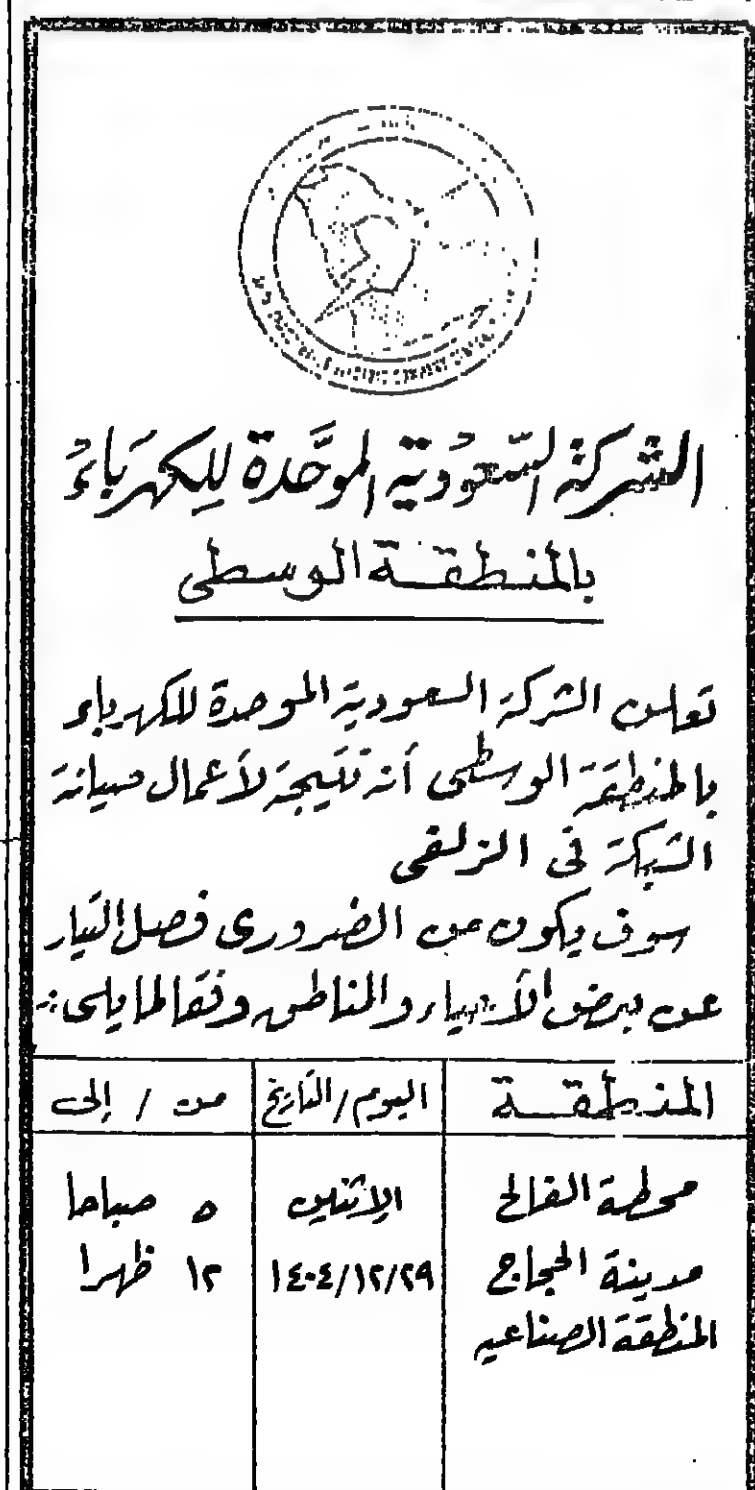 الشركة السعودية الموحدة للكهرباء
بالمنطقة الوسطى
تعلن الشركة السعودية الموحدة للكهرباء
بالمنطقة الوسطى أنه نتيجة لأعمال صيانة
الشبكة في الزلفى
سوف يكون من الضرورى فصل التيار
عن بعض الأحياء والمناطق وفقا لما يلى :-
المنطقة	اليوم/التاريخ	من / إلى
محطة الفالح	الإثنين	٥ صباحا
مدينة الحجاج	١٤٠٤/١٢/٢٩	١٢ ظهرا
المنطقة الصناعيه